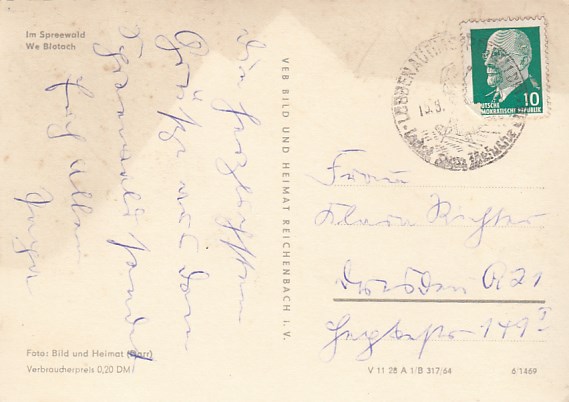 Im Spreewald
We Blotach
Die herzlichsten
Grüße aus dem
Spreewald sendet
Euch allen
Inge
VEB BILD UND HEIMAT REICHENBACH i. V.
LÜBBENAU
10
DEUTSCHE
DEMOKRATISCHE REPUBLIK
Frau
Klara Richter
Dresden A 21
149 I
Foto: Bild und Heimat (Darr)
Verbraucherpreis 0,20 DM
V 11 28 A 1/B 317/64
6/1469